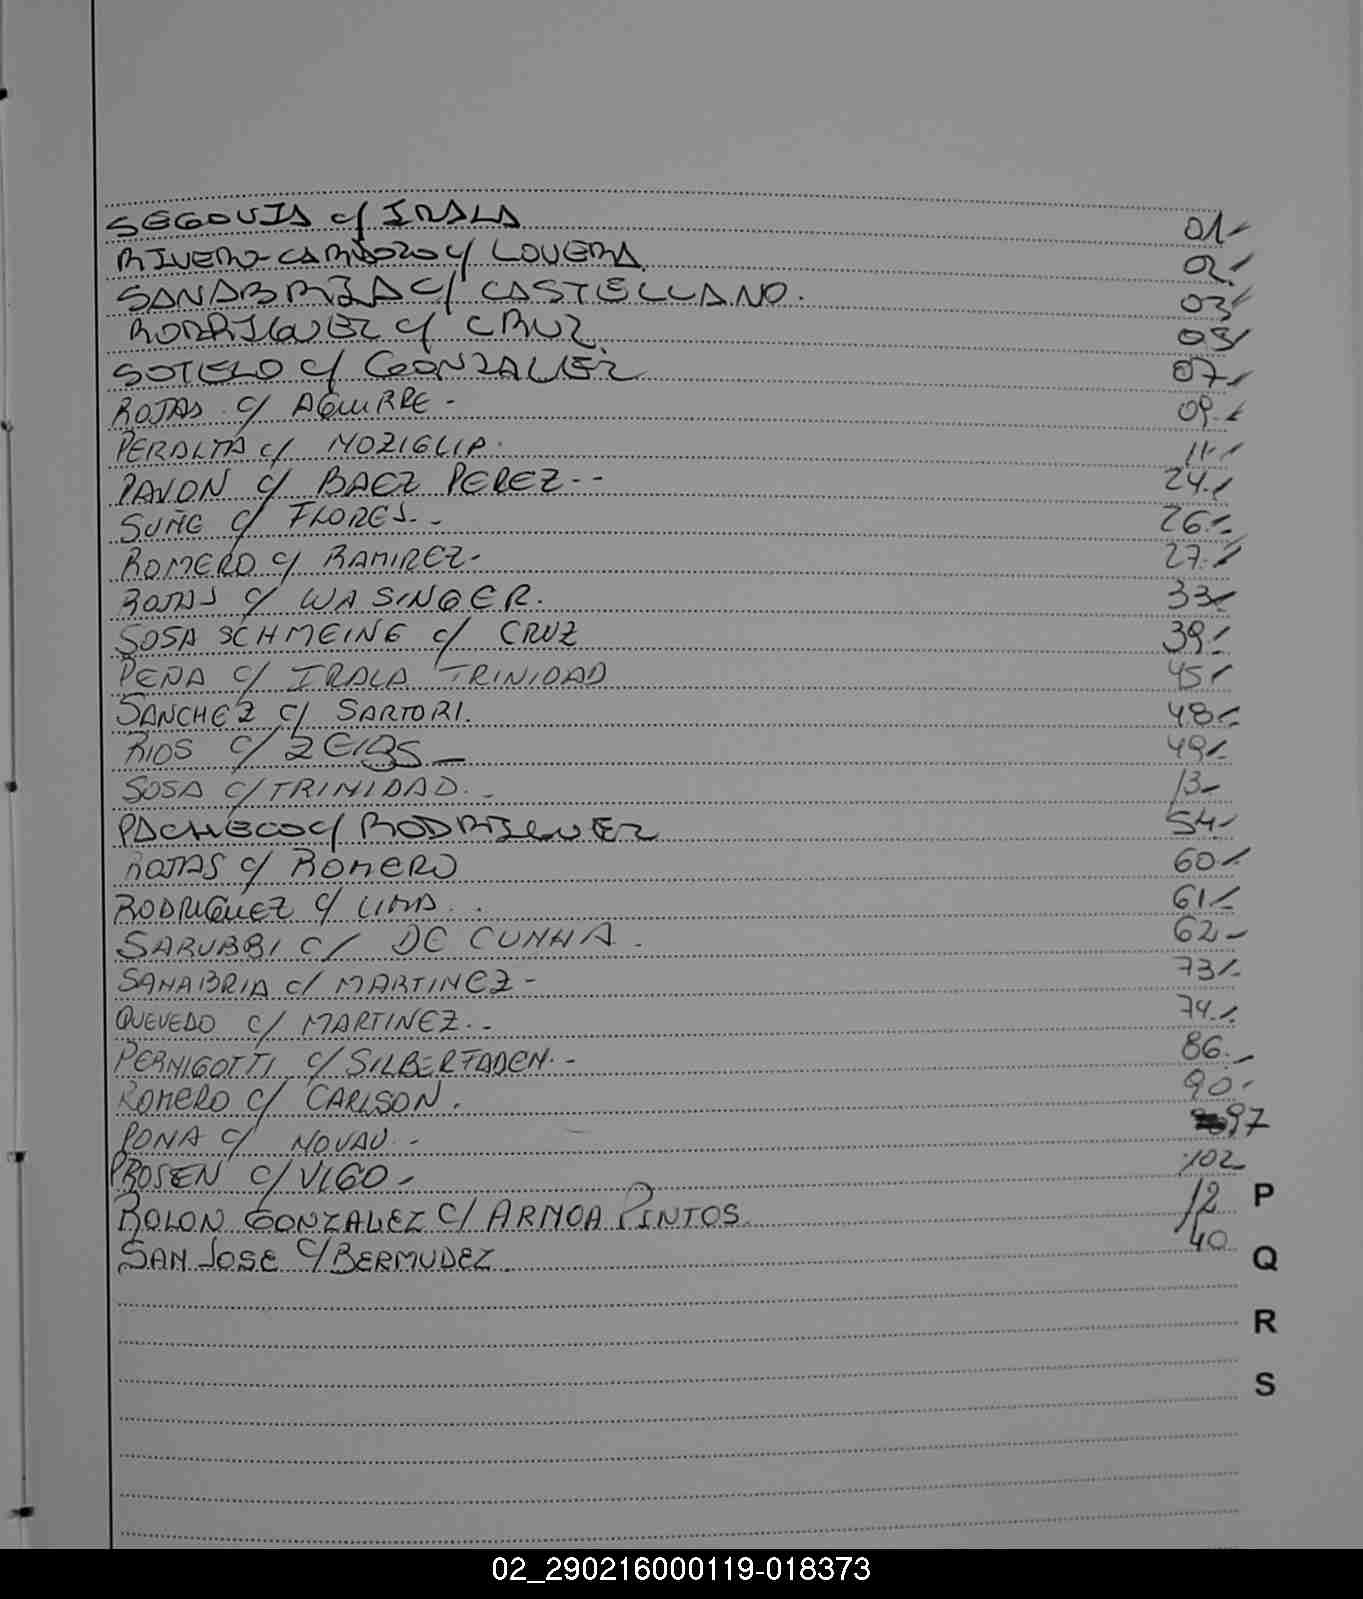 SEGOVIA c/ IRALA 01-
RIVERO-CARDOZO c/ LOVERA 02-
SANABRIA c/ CASTELLANO. 03-
RODRIGUEZ c/ CRUZ. 05-
SOTELO c/ GONZALEZ 07-
ROJAS c/ AGUIRRE - 09.-
PERALTA c/ MOZIGLIA. 11.-
PAVON c/ BAEZ PEREZ.-- 24.-
SUÑE c/ FLORES.- 26.-
ROMERO c/ RAMIREZ- 27.-
ROJAS c/ WASINGER. 33-
SOSA SCHMEING c/ CRUZ 39.-
PEÑA c/ IRALA TRINIDAD 45-
SANCHEZ c/ SARTORI. 48-
RIOS c/ 49-
SOSA c/ TRINIDAD.- 13-
PACHECO c/ RODRIGUEZ 54-
ROJAS c/ ROMERO 60-
RODRIGUEZ c/ LIMA. . 61-
SARUBBI c/ DC CUNHA. 62-
SANABRIA c/ MARTINEZ- 73-
QUEVEDO c/ MARTINEZ.- 74.-
PERNIGOTTI c/ SILBERFADEN.- 86.-
ROMERO c/ CARLSON. 90-
PONA c/ NOVAU.- 97
PROSEN c/ VIGO- 102-
ROLON GONZALEZ C/ ARMOA PINTOS. 12
SAN JOSE C/ BERMUDEZ. 40
P
Q
R
S
02_290216000119-018373